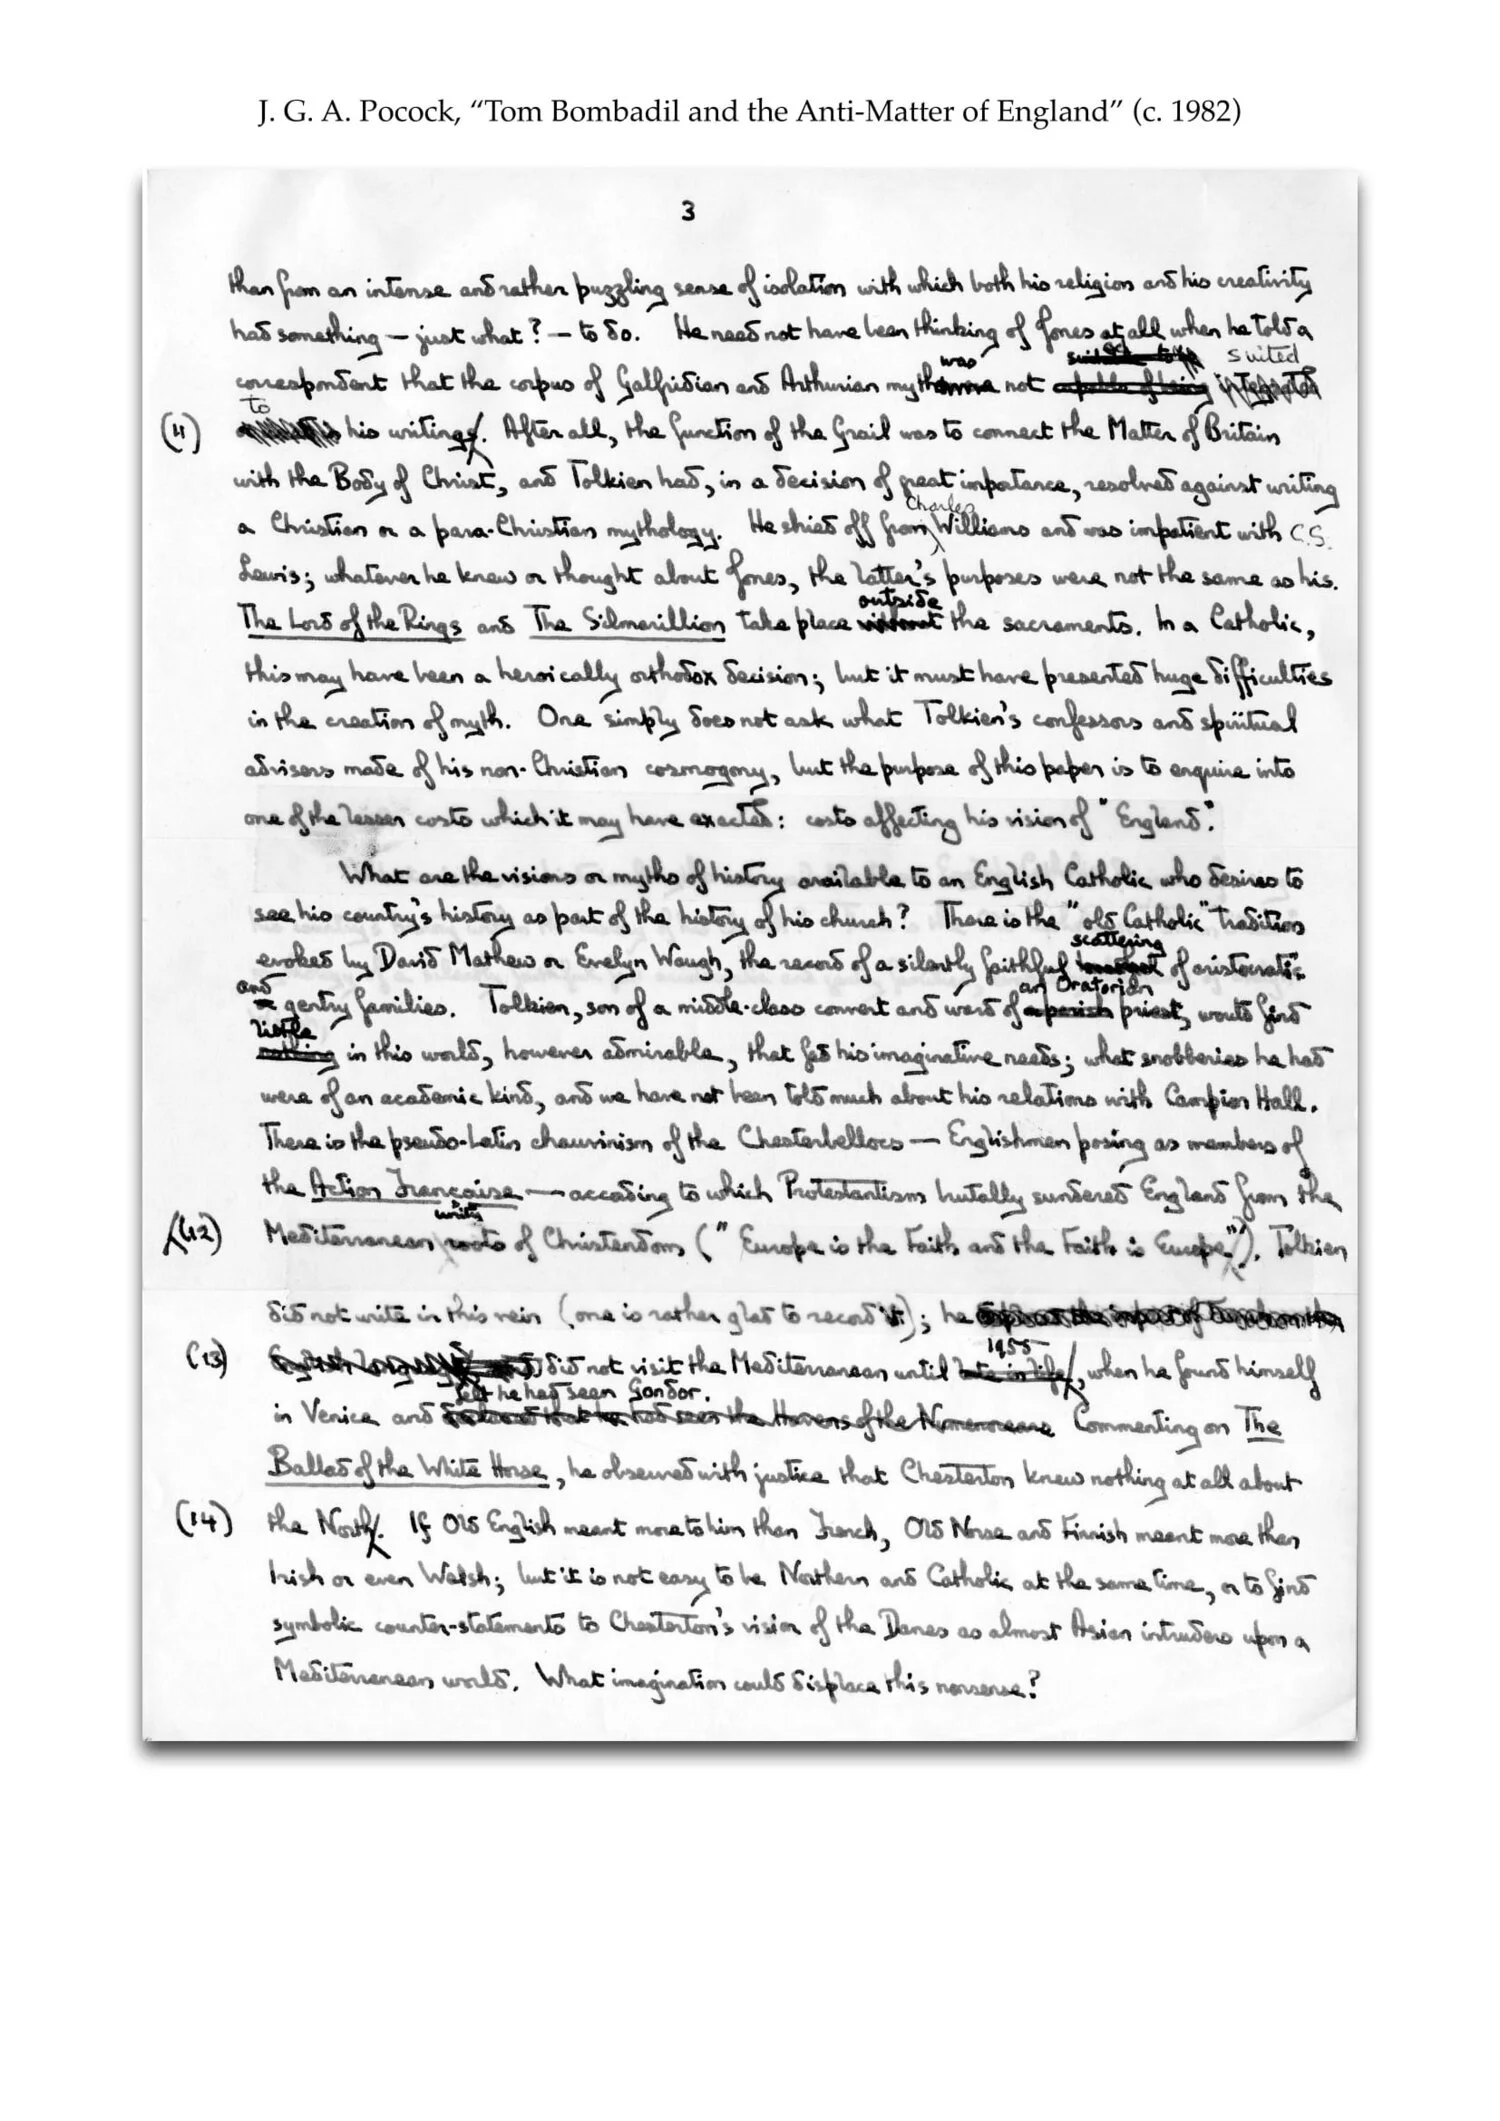 J. G. A. Pocock, “Tom Bombadil and the Anti-Matter of England” (c. 1982)
3
than from an intense and rather puzzling sense of isolation with which both his religion and his creativity
had something — just what? — to do. He need not have been thinking of Jones at all when he told a
was suited
correspondent that the corpus of Galfridian and Arthurian myth not capable of being integrated
to
(11) his writings. After all, the function of the Grail was to connect the Matter of Britain
with the Body of Christ, and Tolkien had, in a decision of great importance, resolved against writing
Charles
a Christian or a para-Christian mythology. He shied off from Williams and was impatient with C.S.
Lewis; whatever he knew or thought about Jones, the latter's purposes were not the same as his.
outside
The Lord of the Rings and The Silmarillion take place without the sacraments. In a Catholic,
this may have been a heroically orthodox decision; but it must have presented huge difficulties
in the creation of myth. One simply does not ask what Tolkien's confessors and spiritual
advisers made of his non-Christian cosmogony, but the purpose of this paper is to enquire into
one of the lesser costs which it may have exacted: costs affecting his vision of "England".
What are the visions or myths of history available to an English Catholic who desires to
see his country's history as part of the history of his church? There is the "old Catholic" tradition
scattering
evoked by David Mathew or Evelyn Waugh, the record of a silently faithful of aristocratic
and an Oratorian
gentry families. Tolkien, son of a middle-class convert and ward of a parish priest, would find
little
nothing in this world, however admirable, that fed his imaginative needs; what snobberies he had
were of an academic kind, and we have not been told much about his relations with Campion Hall.
There is the pseudo-Latin chauvinism of the Chesterbellocs — Englishmen posing as members of
the Action Française — according to which Protestantism brutally sundered England from the
unity
(12) Mediterranean roots of Christendom ("Europe is the Faith and the Faith is Europe"). Tolkien
did not write in this vein (one is rather glad to record it); he
1955
(13) did not visit the Mediterranean until late in life, when he found himself
felt he had seen Gondor.
in Venice and declared that he had seen the Havens of the Numenoreans Commenting on The
Ballad of the White Horse, he observed with justice that Chesterton knew nothing at all about
(14) the North. If Old English meant more to him than French, Old Norse and Finnish meant more than
Irish or even Welsh; but it is not easy to be Northern and Catholic at the same time, or to find
symbolic counter-statements to Chesterton's vision of the Danes as almost Asian intruders upon a
Mediterranean world. What imagination could displace this nonsense?